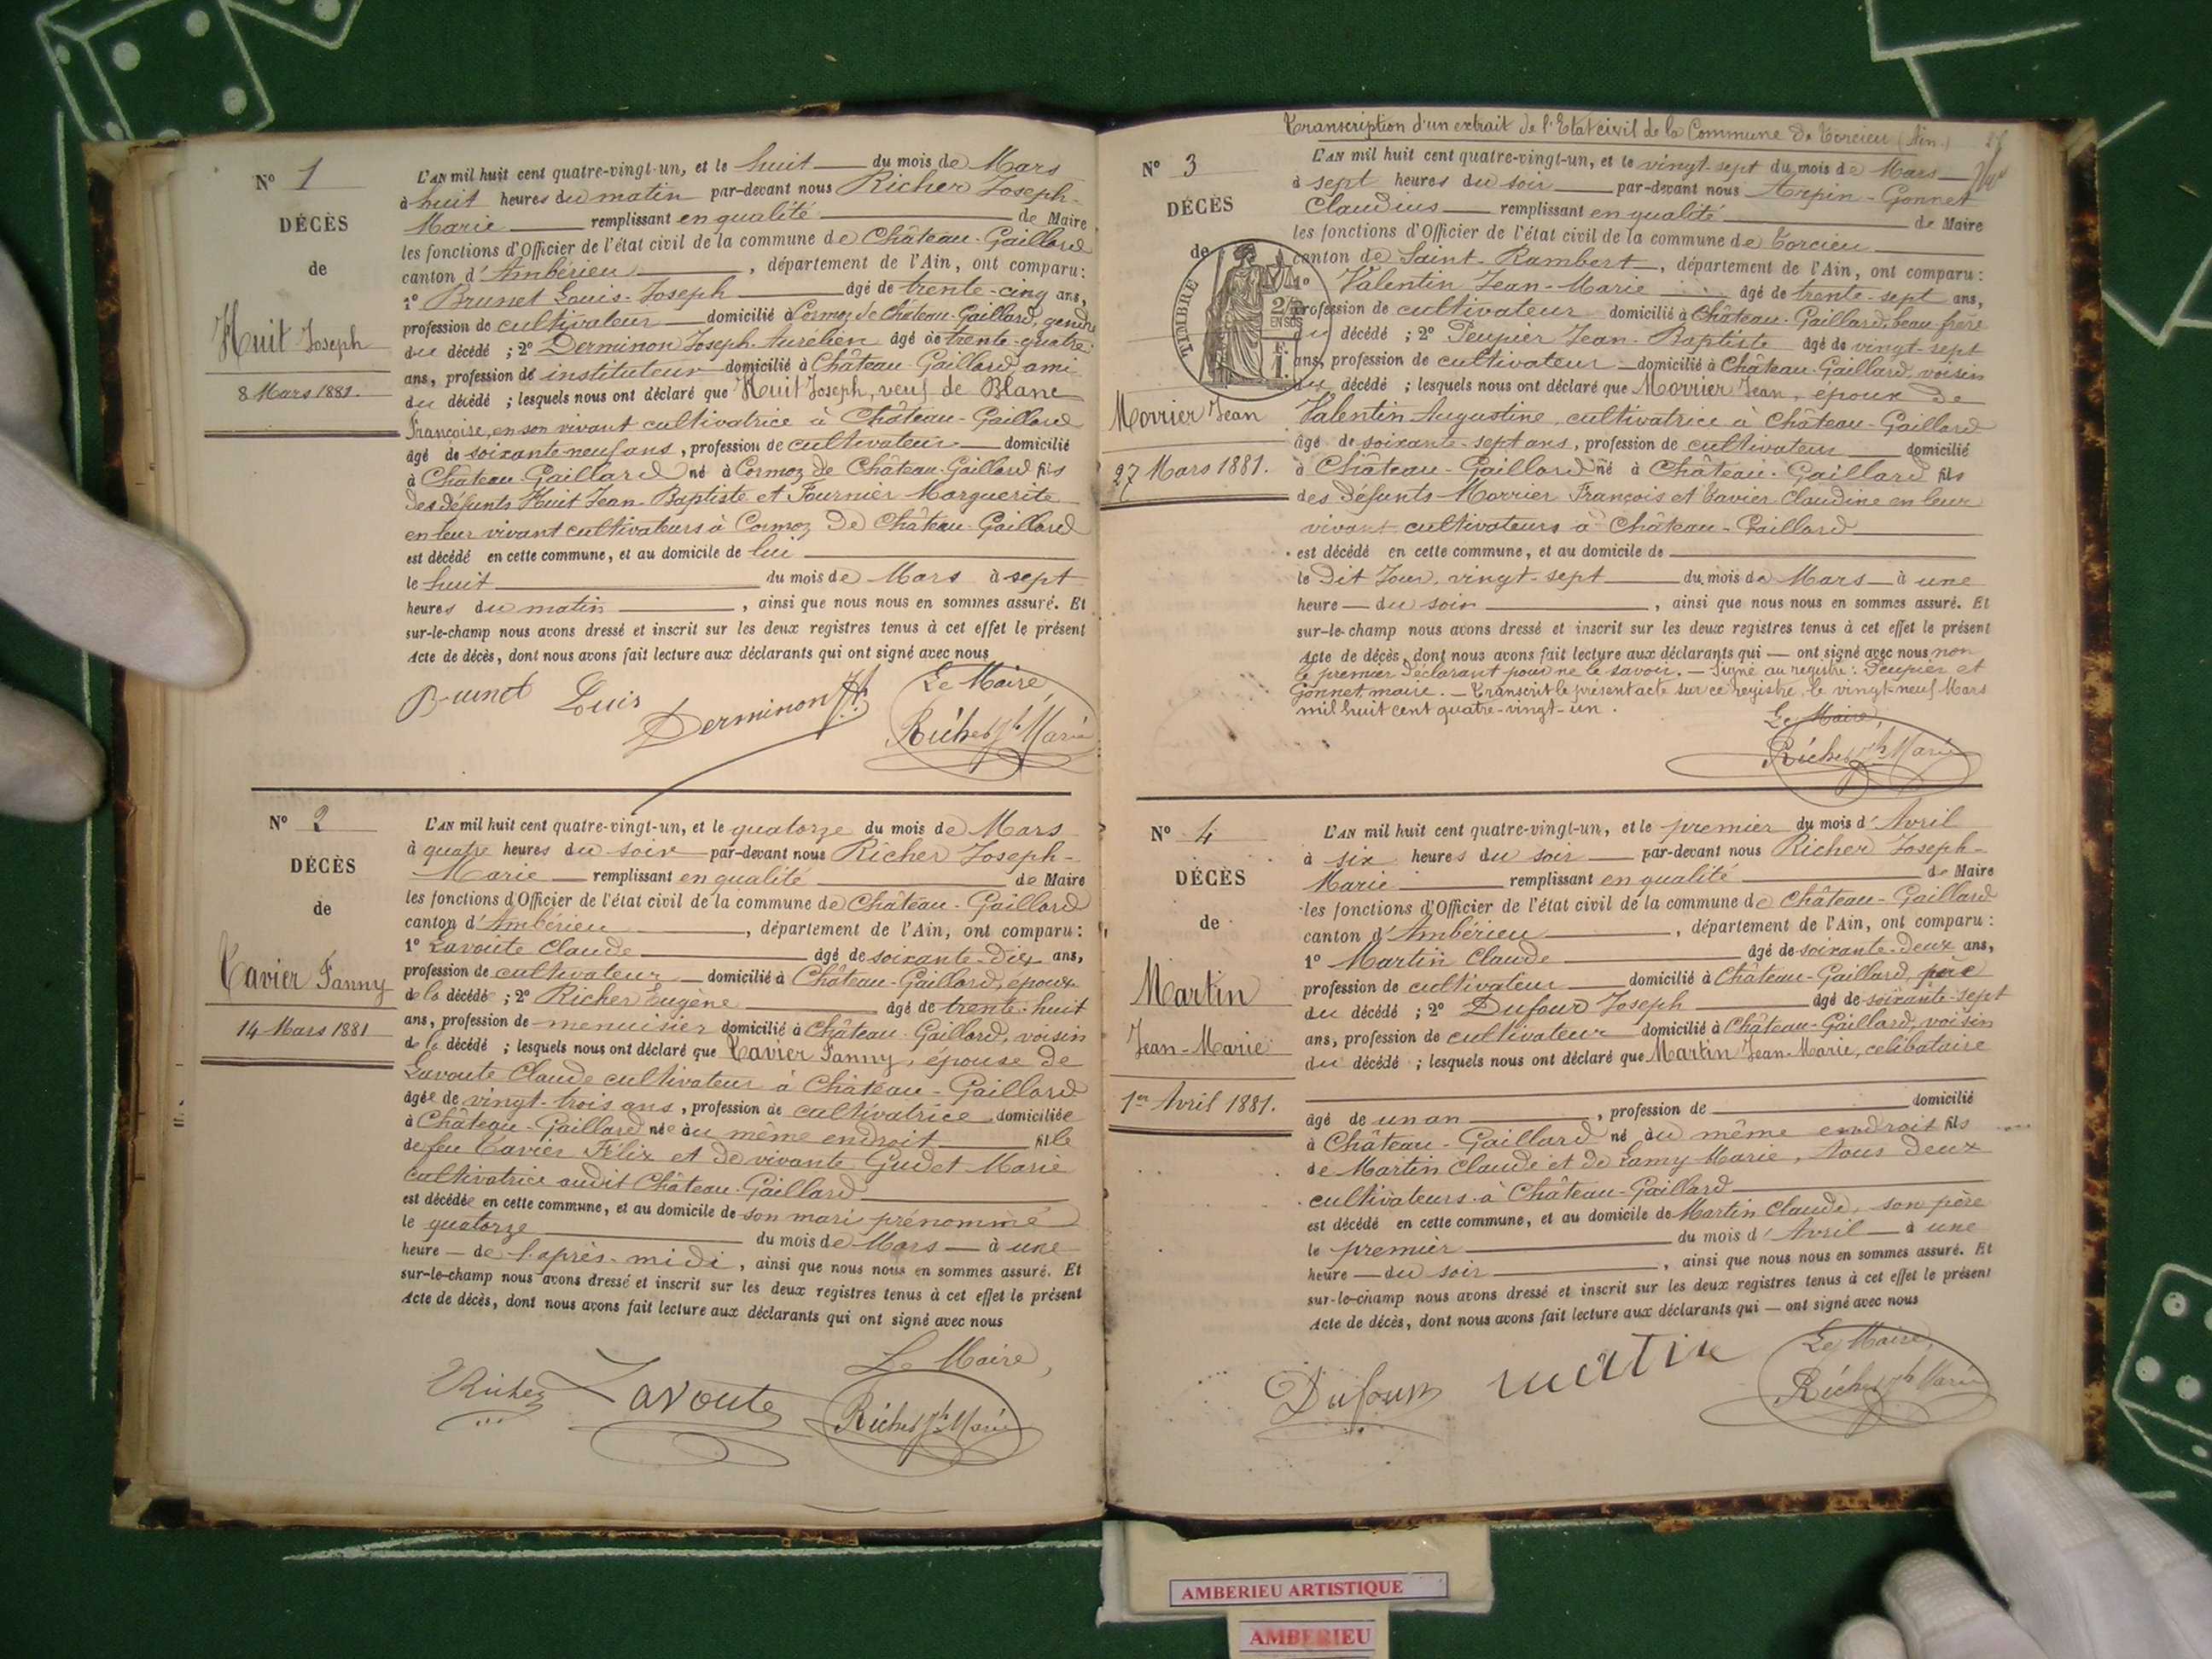 N° 1
DÉCÈS
de
Huit Joseph
8 Mars 1881.
L'AN mil huit cent quatre-vingt-un, et le huit du mois de Mars
à huit heures du matin par-devant nous Richer Joseph-
Marie remplissant en qualité de Maire
les fonctions d'Officier de l'état civil de la commune de Château-Gaillard
canton d'Ambérieu, département de l'Ain, ont comparu:
1° Brunet Louis-Joseph âgé de trente-cinq ans,
profession de cultivateur domicilié à Cormoz de Château-Gaillard, gendre
du décédé ; 2° Derminon Joseph-Aurélien âgé de trente-quatre
ans, profession de instituteur domicilié à Château-Gaillard, ami
du décédé ; lesquels nous ont déclaré que Huit Joseph, veuf de Blanc
Françoise, en son vivant cultivatrice à Château-Gaillard
âgé de soixante-neuf ans, profession de cultivateur domicilié
à Château-Gaillard né à Cormoz de Château-Gaillard fils
des défunts Huit Jean-Baptiste et Fournier Marguerite
en leur vivant cultivateurs à Cormoz de Château-Gaillard
est décédé en cette commune, et au domicile de lui
le huit du mois de Mars à sept
heures du matin, ainsi que nous nous en sommes assuré. Et
sur-le-champ nous avons dressé et inscrit sur les deux registres tenus à cet effet le présent
Acte de décès, dont nous avons fait lecture aux déclarants qui ont signé avec nous
Brunet Louis Derminon
Le Maire,
Richer Jh Marie
N° 2
DÉCÈS
de
Tavier Fanny
14 Mars 1881
L'AN mil huit cent quatre-vingt-un, et le quatorze du mois de Mars
à quatre heures du soir par-devant nous Richer Joseph-
Marie remplissant en qualité de Maire
les fonctions d'Officier de l'état civil de la commune de Château-Gaillard
canton d'Ambérieu, département de l'Ain, ont comparu:
1° Lavoute Claude âgé de soixante-dix ans,
profession de cultivateur domicilié à Château-Gaillard, époux
de la décédée ; 2° Richer Eugène âgé de trente-huit
ans, profession de menuisier domicilié à Château-Gaillard, voisin
de la décédé ; lesquels nous ont déclaré que Tavier Fanny, épouse de
Lavoute Claude cultivateur à Château-Gaillard
âgée de vingt-trois ans, profession de cultivatrice domiciliée
à Château-Gaillard née au même endroit fille
de feu Tavier Félix et de vivante Gudet Marie
cultivatrice audit Château-Gaillard
est décédée en cette commune, et au domicile de son mari prénommé
le quatorze du mois de Mars à une
heure de l'après-midi, ainsi que nous nous en sommes assuré. Et
sur-le-champ nous avons dressé et inscrit sur les deux registres tenus à cet effet le présent
Acte de décès, dont nous avons fait lecture aux déclarants qui ont signé avec nous
Richer Lavoute
Le Maire,
Richer Jh Marie
Transcription d'un extrait de l'Etat civil de la Commune de Torcieu (Ain.)
N° 3
DÉCÈS
de
TIMBRE
2/10
EN SUS
F.
1.
Morrier Jean
27 Mars 1881.
L'AN mil huit cent quatre-vingt-un, et le vingt-sept du mois de Mars
à sept heures du soir par-devant nous Arpin-Gonnet
Claudius remplissant en qualité de Maire
les fonctions d'Officier de l'état civil de la commune de Torcieu
canton de Saint-Rambert, département de l'Ain, ont comparu:
1° Valentin Jean-Marie âgé de trente-sept ans,
profession de cultivateur domicilié à Château-Gaillard, beau frère
du décédé ; 2° Peupier Jean-Baptiste âgé de vingt-sept
ans, profession de cultivateur domicilié à Château-Gaillard, voisin
du décédé ; lesquels nous ont déclaré que Morrier Jean, époux de
Valentin Augustine, cultivatrice à Château-Gaillard
âgé de soixante-sept ans, profession de cultivateur domicilié
à Château-Gaillard né à Château-Gaillard fils
des défunts Morrier François et Tavier Claudine en leur
vivant cultivateurs à Château-Gaillard
est décédé en cette commune, et au domicile de
le dit Jour, vingt-sept du mois de Mars à une
heure du soir, ainsi que nous nous en sommes assuré. Et
sur-le-champ nous avons dressé et inscrit sur les deux registres tenus à cet effet le présent
Acte de décès, dont nous avons fait lecture aux déclarants qui ont signé avec nous non
le premier déclarant pour ne le savoir. - Signé au registre: Peupier et
Gonnet, maire. - Transcrit le présent acte sur ce registre, le vingt-neuf Mars
mil huit cent quatre-vingt-un.
Le Maire,
Richer Jh Marie
N° 4
DÉCÈS
de
Martin
Jean-Marie
1er Avril 1881.
L'AN mil huit cent quatre-vingt-un, et le premier du mois d'Avril
à six heures du soir par-devant nous Richer Joseph-
Marie remplissant en qualité de Maire
les fonctions d'Officier de l'état civil de la commune de Château-Gaillard
canton d'Ambérieu, département de l'Ain, ont comparu:
1° Martin Claude âgé de soixante-deux ans,
profession de cultivateur domicilié à Château-Gaillard, père
du décédé ; 2° Dufour Joseph âgé de soixante-sept
ans, profession de cultivateur domicilié à Château-Gaillard, voisin
du décédé ; lesquels nous ont déclaré que Martin Jean-Marie, célibataire
âgé de un an, profession de domicilié
à Château-Gaillard né au même endroit fils
de Martin Claude et de Lamy Marie, tous deux
cultivateurs à Château-Gaillard
est décédé en cette commune, et au domicile de Martin Claude, son père
le premier du mois d'Avril à une
heure du soir, ainsi que nous nous en sommes assuré. Et
sur-le-champ nous avons dressé et inscrit sur les deux registres tenus à cet effet le présent
Acte de décès, dont nous avons fait lecture aux déclarants qui ont signé avec nous
Dufour Martin
Le Maire,
Richer Jh Marie
AMBERIEU ARTISTIQUE
AMBERIEU